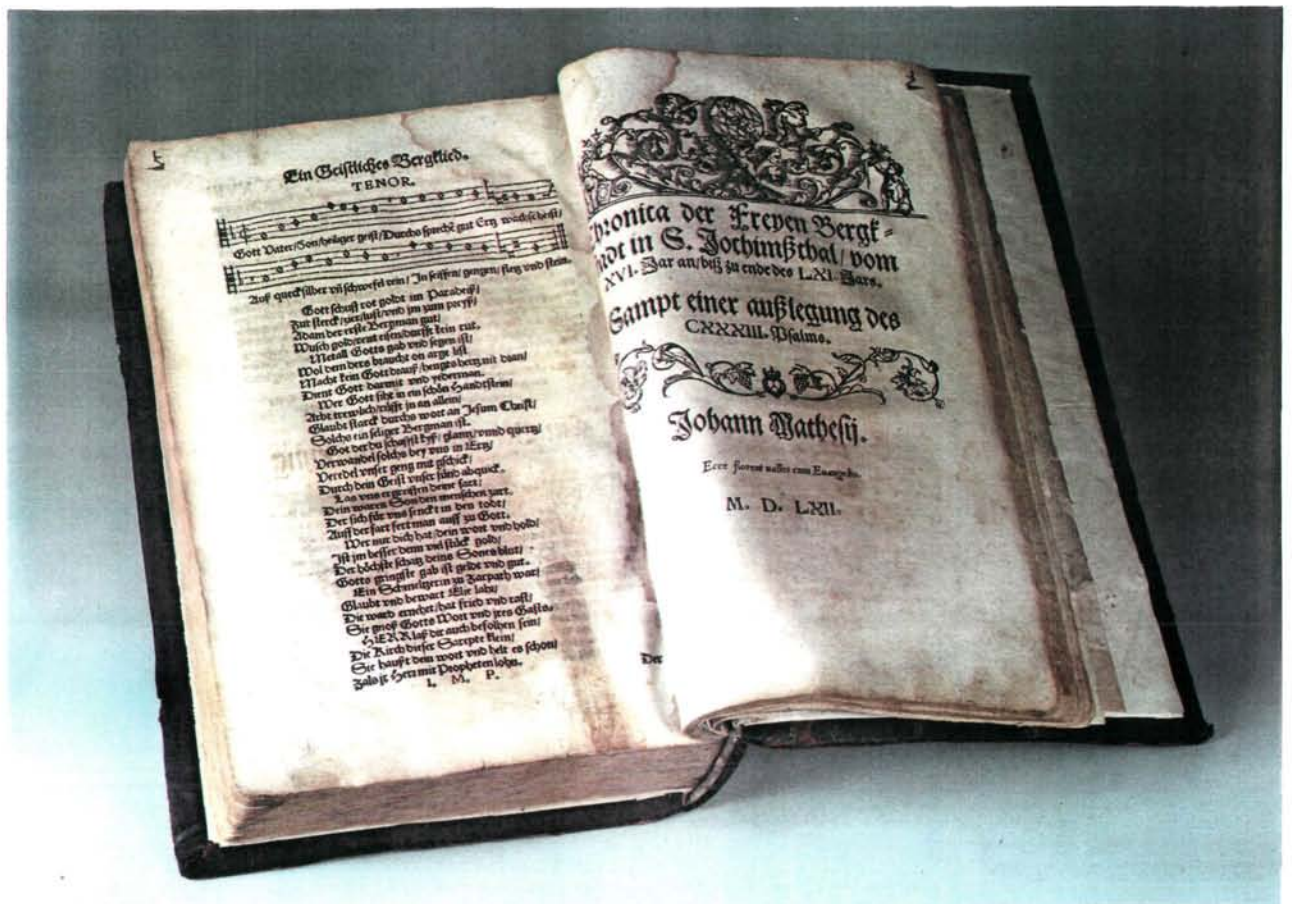 Ein Geistliches Bergklied.
TENOR.
Gott Vater/Son/heiliger geist/Durchs sprechē gut Ertz wachsen heist/
Auß quecksilber vñ schwefel rein/ In seiffen/gengen/fletz vnd stein.
Gott schuff rot goldt im Paradeiß/
Zur sterck/zier/lust/vnd jm zum preyß/
Adam der erste Bergman gut/
Wusch gold/rent eisen/durffte kein rut.
Metall Gotts gab vnd segen ist/
Wol dem ders braucht on arge list
Macht kein Gott drauß/hengts hertz nit dran/
Dient Gott darmit vnd yederman.
Wer Gott siht in ein schön Handtstein/
Arbt trewlich/rüfft jn an allein/
Glaubt starck durchs wort an Jesum Christ/
Solchs ein seliger Bergman ist.
Got der du schaffst kyß/glantz/vnnd quertz/
Verwandel solchs bey vns in Ertz/
Veredel vnser geng mit gschick/
Durch dein Geist vnser sünd abquick.
Las vns ergreiffen deine fart/
Dein waren Son den menschen zart.
Der sich für vns senckt in den todt/
Auff der fart fert man auff zu Gott.
Wer nur dich hat/dein wort vnd hold/
Ist jm besser denn viel stück gold/
Der höchste schatz deins Sones blut/
Gotts gringste gab ist geldt vnd gut.
Ein Schmeltzerin zu Zarpath war/
Glaubt vnd bewart Elie lahr/
Die ward ernehrt/hat fried vnd rast/
Sie gnoß Gotts Wort vnd jres Gasts.
HERR laß dir auch befolhen sein/
Die Kirch dieser Sarepte klein/
Sie haußt dein wort vnd helt es schon/
Zals jr Herr mit Propheten lohn.
I. M. P.
Der
Chronica der Freyen Bergk=
stadt in S. Jochimßthal/ vom
XVI. Jar an/biß zu ende des LXI. Jars.
Sampt einer außlegung des
CXXXIII. Psalms.
Johann Mathesij.
Ecce florent valles cum Euangelio.
M. D. LXII.